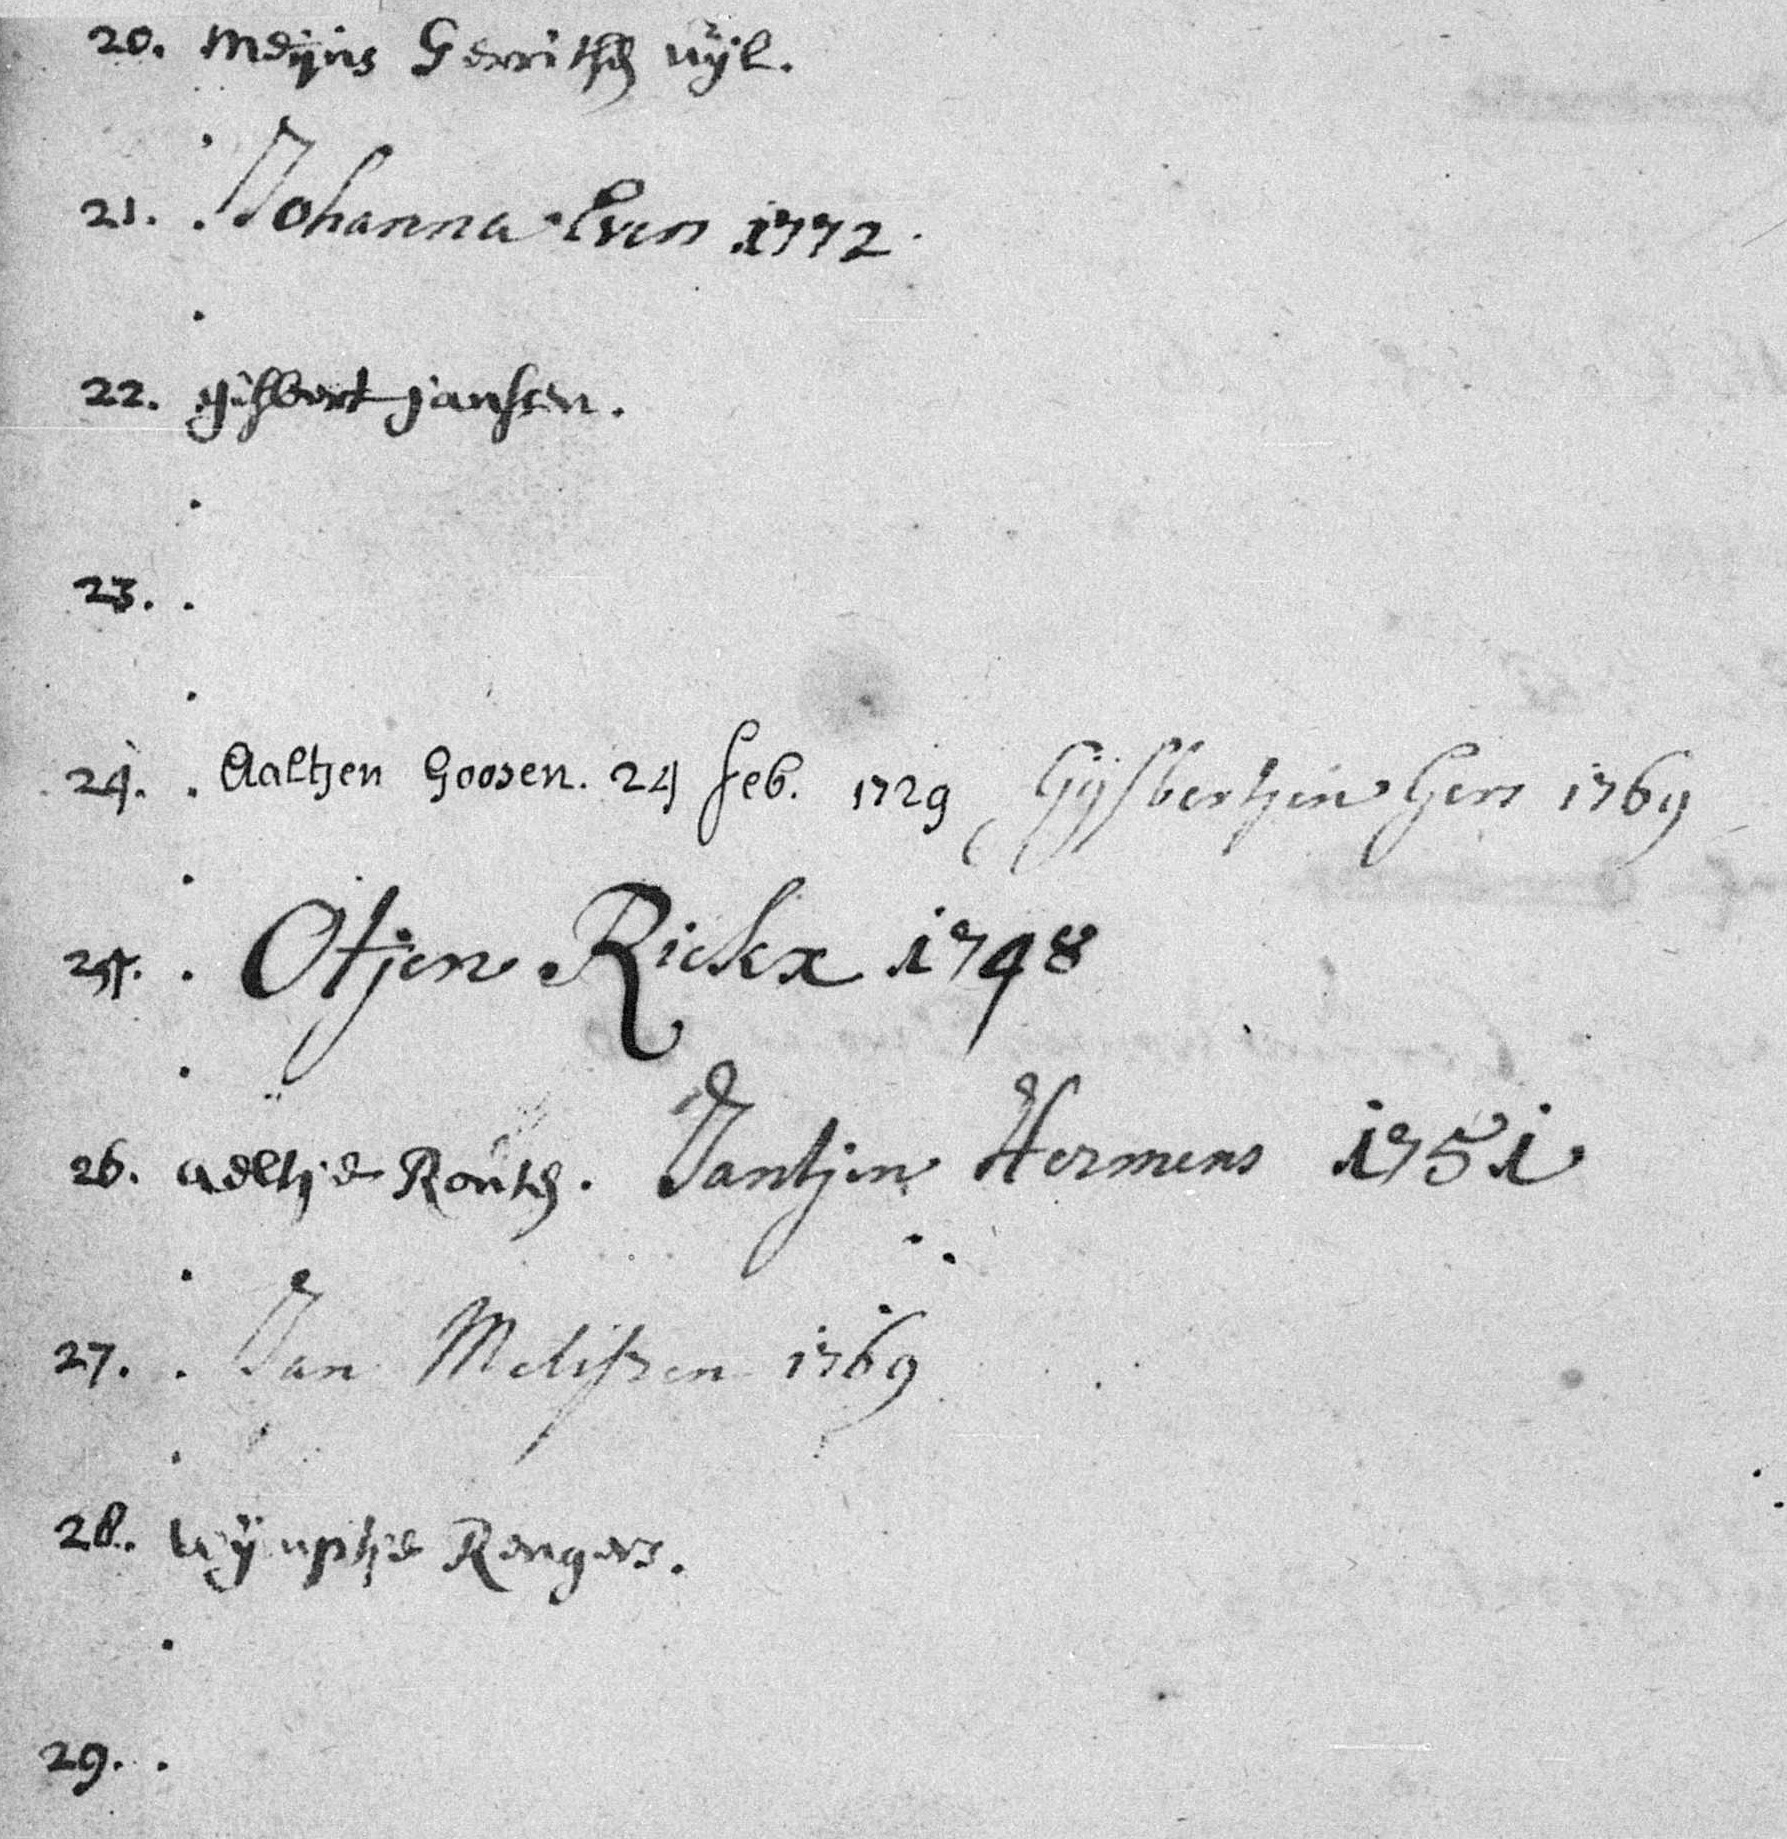 20. Meijns Gerritsz uijl.
21. . Johanna Evers 1772.
22. gijsbert jansen.
23. .
24. . Aaltjen Goosen. 24 feb. 1729 Gijsbertjen Gers 1769
25. . Otjen Rickx 1748
26. aeltje Routs. Jantjen Hermens 1751
27. . Jan Melissen 1769
28. wijnptje Rengers.
29. .